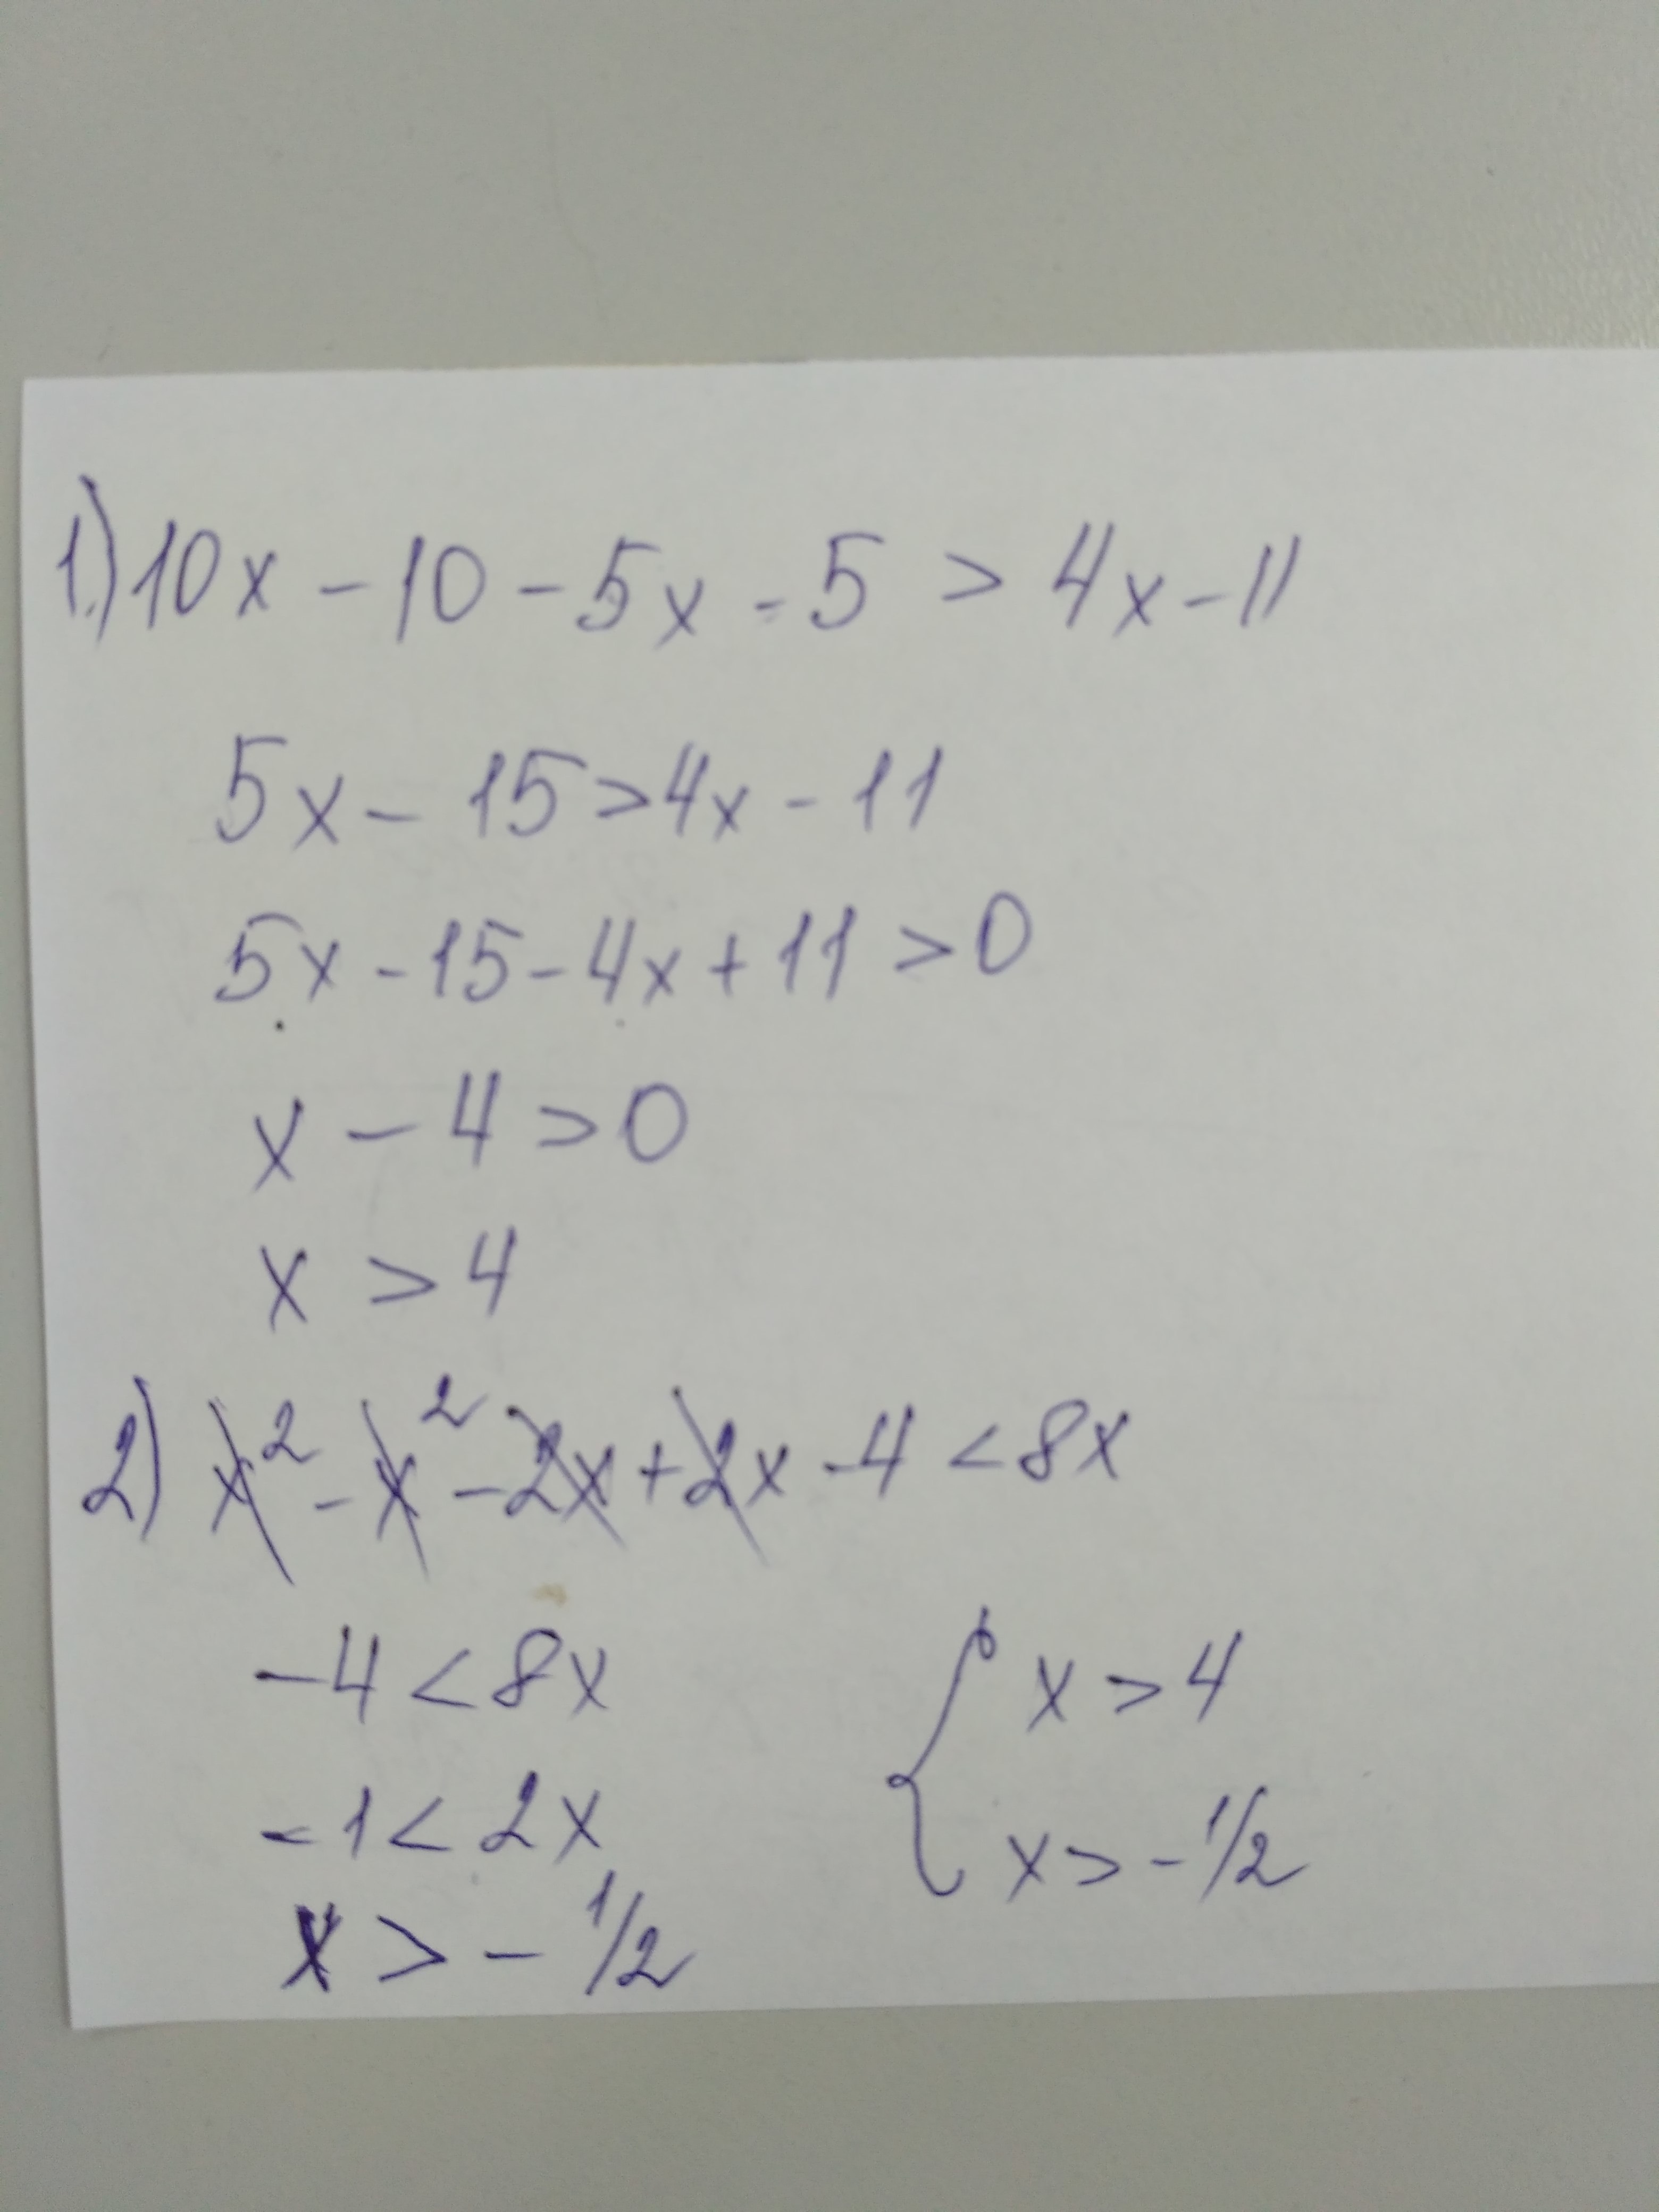 1.) 10x - 10 - 5x - 5 > 4x - 11
5x - 15 > 4x - 11
5x - 15 - 4x + 11 > 0
x - 4 > 0
x > 4
2) x² - x² - 2x + 2x - 4 < 8x
-4 < 8x
-1 < 2x
x > - 1/2
{ x > 4
x > - 1/2